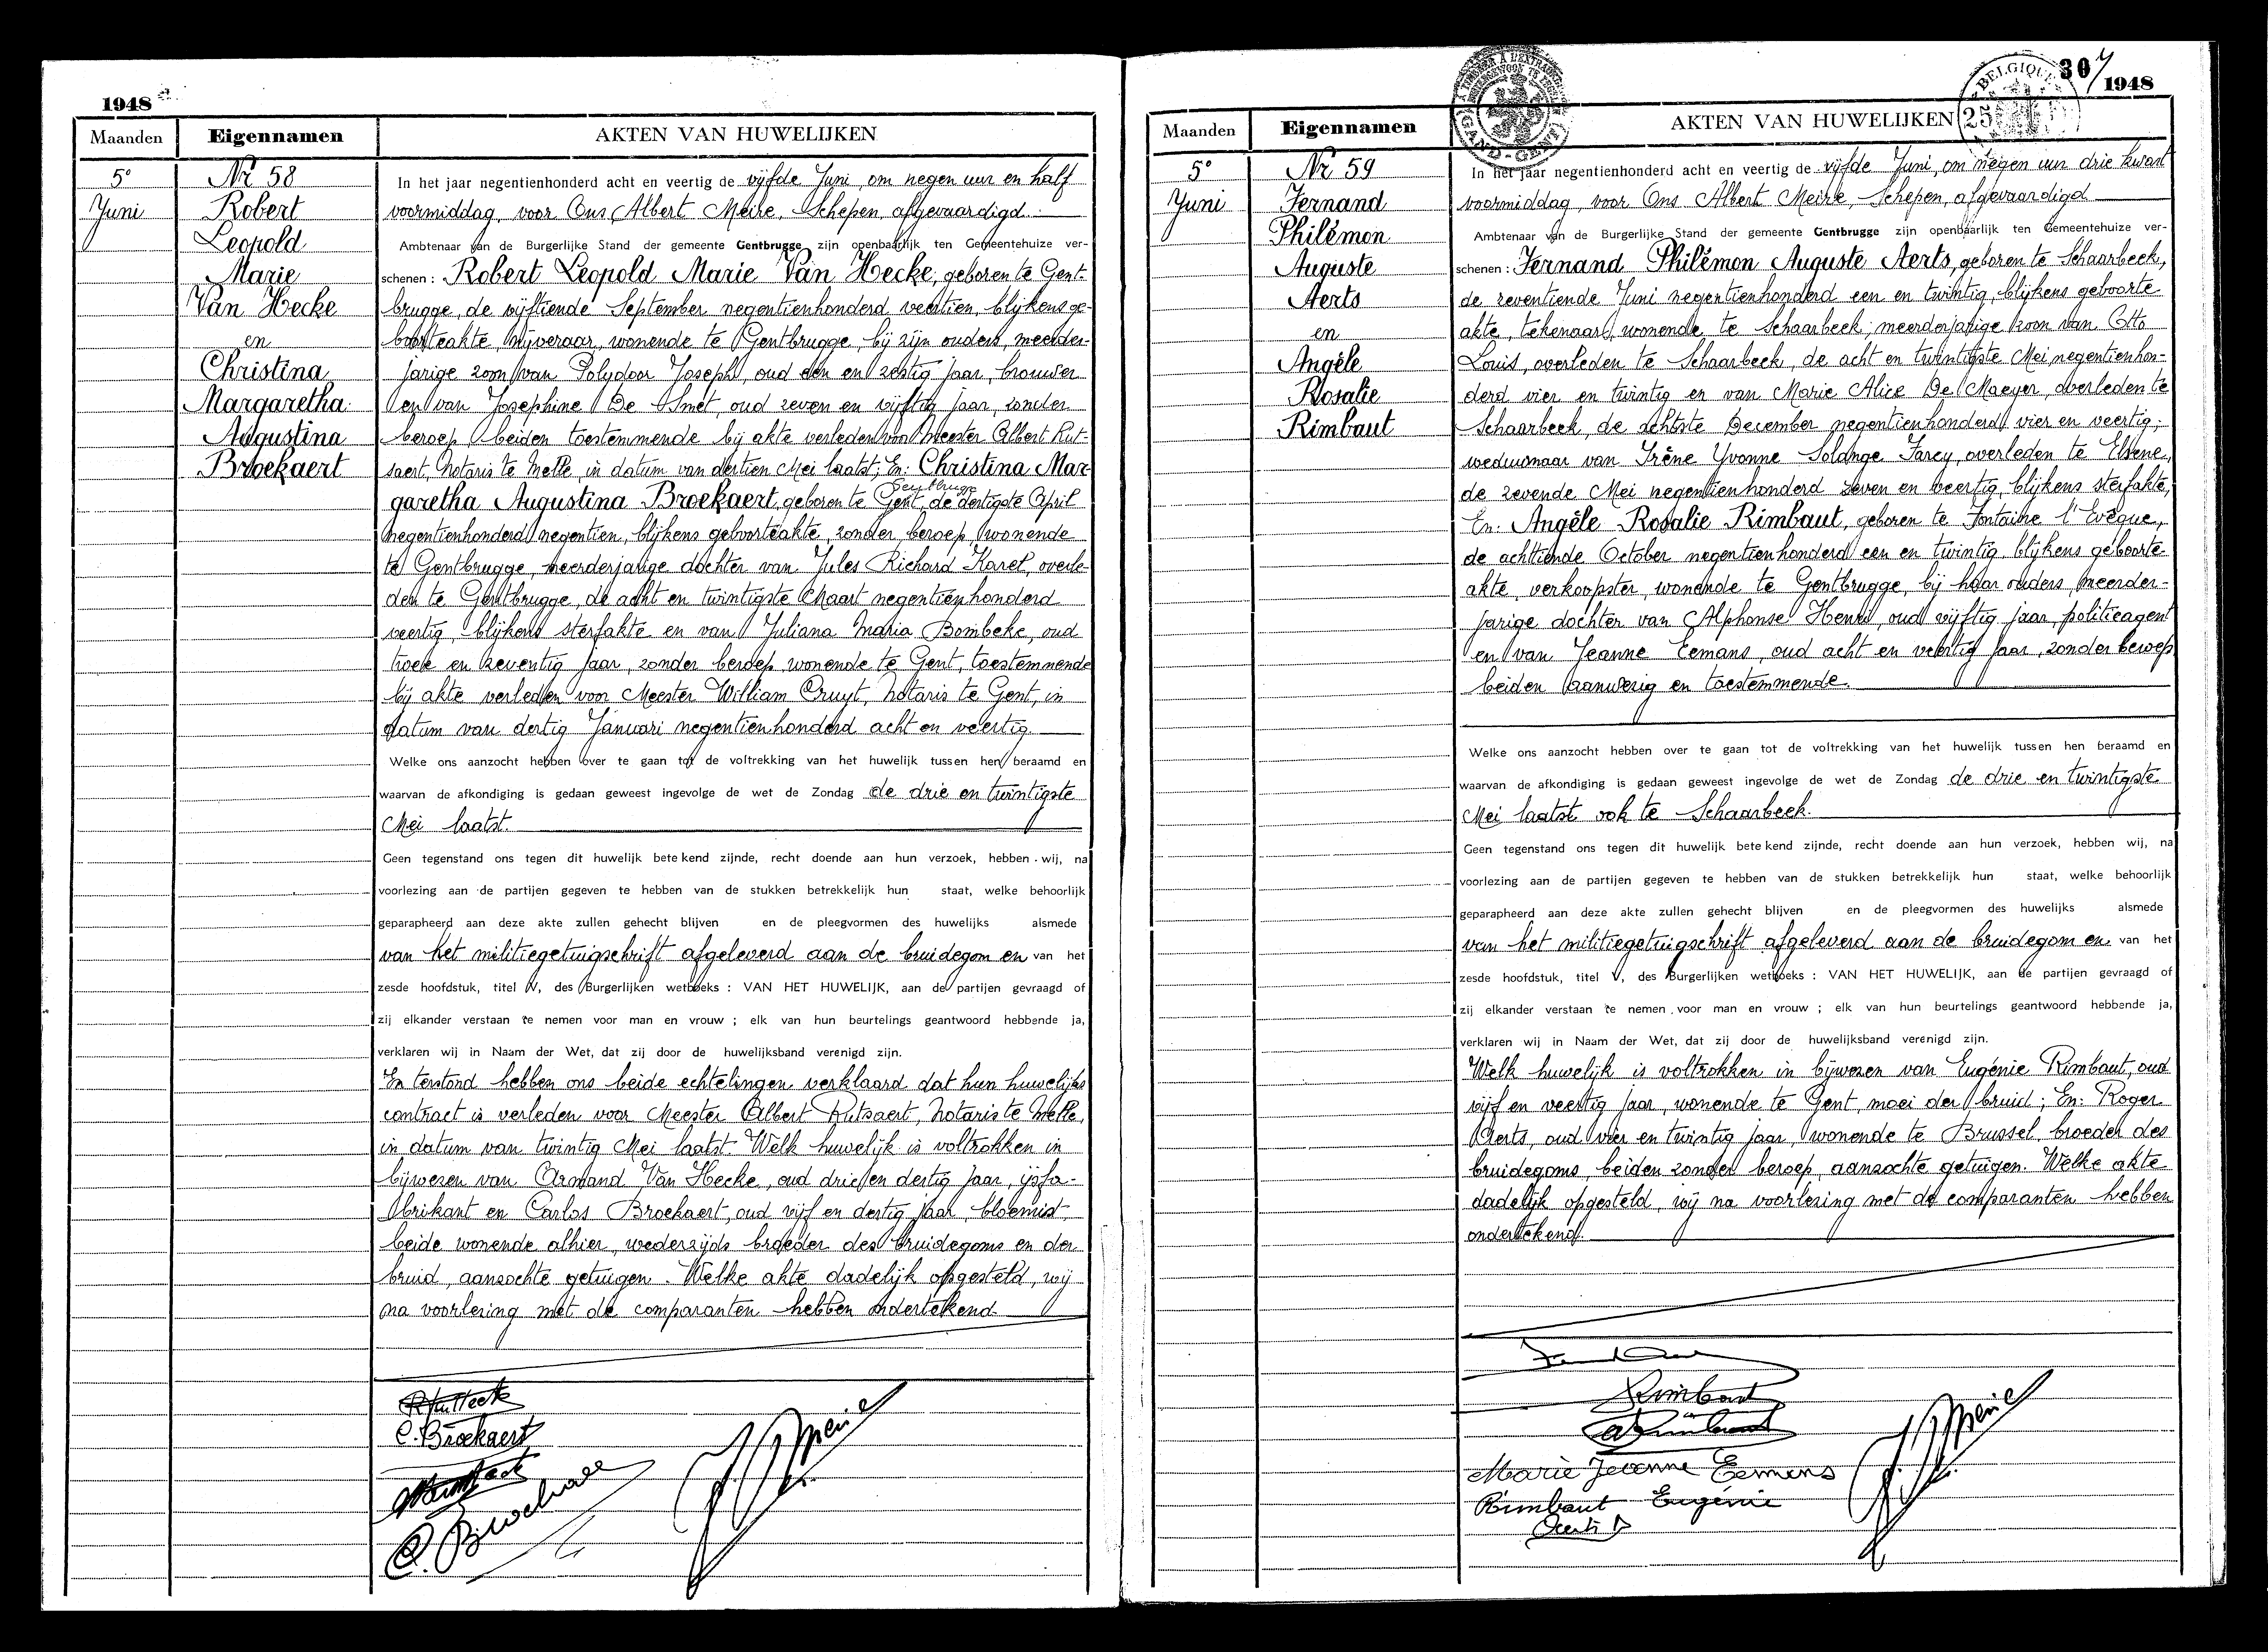 1948
Maanden
Eigennamen
AKTEN VAN HUWELIJKEN
5°
Juni
Nr 58
Robert
Leopold
Marie
Van Hecke
en
Christina
Margaretha
Augustina
Broekaert
In het jaar negentienhonderd acht en veertig de vijfde Juni, om negen uur en half
voormiddag, voor Ons Albert Meire, Schepen, afgevaardigd
Ambtenaar van de Burgerlijke Stand der gemeente Gentbrugge zijn openbaarlijk ten Gemeentehuize ver-
schenen : Robert Leopold Marie Van Hecke, geboren te Gent-
brugge, de vijftiende September negentienhonderd veertien, blijkens ge-
boorteakte, nijveraar, wonende te Gentbrugge, bij zijn ouders, meerder-
jarige zoon van Polydoor Joseph, oud een en zestig jaar, brouwer
en van Josephine De Smet, oud zeven en vijftig jaar, zonder
beroep beiden toestemmende bij akte verleden voor Meester Albert Rut-
saert, Notaris te Melle, in datum van dertien Mei laatst; En: Christina Mar-
garetha Augustina Broekaert, geboren te Gent, de dertigste April
negentienhonderd negentien, blijkens geboorteakte, zonder beroep, wonende
te Gentbrugge, meerderjarige dochter van Jules Richard Karel, overle-
den te Gentbrugge, de acht en twintigste Maart negentienhonderd
veertig, blijkens sterfakte en van Juliana Maria Bombeke, oud
twee en zeventig jaar, zonder beroep wonende te Gent, toestemmende
bij akte verleden voor Meester William Cruyt, Notaris te Gent, in
datum van dertig Januari negentienhonderd acht en veertig.
Welke ons aanzocht hebben over te gaan tot de voltrekking van het huwelijk tussen hen beraamd en
waarvan de afkondiging is gedaan geweest ingevolge de wet de Zondag de drie en twintigste
Mei laatst.
Geen tegenstand ons tegen dit huwelijk bete kend zijnde, recht doende aan hun verzoek, hebben wij, na
voorlezing aan de partijen gegeven te hebben van de stukken betrekkelijk hun staat, welke behoorlijk
geparapheerd aan deze akte zullen gehecht blijven en de pleegvormen des huwelijks alsmede
van het militiegetuigschrift afgeleverd aan de bruidegom en van het
zesde hoofdstuk, titel V, des Burgerlijken wetboeks : VAN HET HUWELIJK, aan de partijen gevraagd of
zij elkander verstaan te nemen voor man en vrouw ; elk van hun beurtelings geantwoord hebbende ja,
verklaren wij in Naam der Wet, dat zij door de huwelijksband verenigd zijn.
En terstond hebben ons beide echtelingen verklaard dat hun huwelijks
contract is verleden voor Meester Albert Rutsaert, Notaris te Melle,
in datum van twintig Mei laatst. Welk huwelijk is voltrokken in
bijwezen van Armand Van Hecke, oud drie en dertig jaar, ijsfa-
brikant en Carlos Broekaert, oud vijf en dertig jaar, bloemist,
beide wonende alhier, wederzijds broeder des bruidegoms en der
bruid, aanzochte getuigen. Welke akte dadelijk opgesteld, wij
na voorlezing met de comparanten hebben ondertekend.
C. Broekaert
C. Broekaert
307
1948
BELGIQUE
25
GAND - GENT
Maanden
Eigennamen
AKTEN VAN HUWELIJKEN
5°
Juni
Nr 59
Fernand
Philémon
Auguste
Aerts
en
Angèle
Rosalie
Rimbaut
In het jaar negentienhonderd acht en veertig de vijfde Juni, om negen uur drie kwart
voormiddag, voor Ons Albert Meire, Schepen, afgevaardigd
Ambtenaar van de Burgerlijke Stand der gemeente Gentbrugge zijn openbaarlijk ten Gemeentehuize ver-
schenen : Fernand Philémon Auguste Aerts, geboren te Schaarbeek,
de zeventiende Juni negentienhonderd een en twintig, blijkens geboorte
akte, tekenaar, wonende te Schaarbeek, meerderjarige zoon van Otto
Louis, overleden te Schaarbeek, de acht en twintigste Mei negentienhon-
derd vier en twintig en van Marie Alice De Maeyer, overleden te
Schaarbeek, de achtste December negentienhonderd vier en veertig;
weduwnaar van Irène Yvonne Solange Farcy, overleden te Elsene,
de zevende Mei negentienhonderd zeven en veertig, blijkens sterfakte,
En: Angèle Rosalie Rimbaut, geboren te Fontaine l'Evêque,
de achttiende October negentienhonderd een en twintig blijkens geboorte-
akte, verkoopster, wonende te Gentbrugge, bij haar ouders, meerder-
jarige dochter van Alphonse Henri, oud vijftig jaar, politieagent
en van Jeanne Eemans, oud acht en veertig jaar, zonder beroep
beiden aanwezig en toestemmende.
Welke ons aanzocht hebben over te gaan tot de voltrekking van het huwelijk tussen hen beraamd en
waarvan de afkondiging is gedaan geweest ingevolge de wet de Zondag de drie en twintigste
Mei laatst ook te Schaarbeek.
Geen tegenstand ons tegen dit huwelijk bete kend zijnde, recht doende aan hun verzoek, hebben wij, na
voorlezing aan de partijen gegeven te hebben van de stukken betrekkelijk hun staat, welke behoorlijk
geparapheerd aan deze akte zullen gehecht blijven en de pleegvormen des huwelijks alsmede
van het militiegetuigschrift afgeleverd aan de bruidegom en van het
zesde hoofdstuk, titel V, des Burgerlijken wetboeks : VAN HET HUWELIJK, aan de partijen gevraagd of
zij elkander verstaan te nemen voor man en vrouw ; elk van hun beurtelings geantwoord hebbende ja,
verklaren wij in Naam der Wet, dat zij door de huwelijksband verenigd zijn.
Welk huwelijk is voltrokken in bijwezen van Eugénie Rimbaut, oud
vijf en veertig jaar, wonende te Gent, moei der bruid; En: Roger
Aerts, oud vier en twintig jaar, wonende te Brussel, broeder des
bruidegoms, beiden zonder beroep, aanzochte getuigen. Welke akte
dadelijk opgesteld, wij na voorlezing met de comparanten hebben
ondertekend.
Rimbaut
Marie Jeanne Eemans
Rimbaut Eugénie